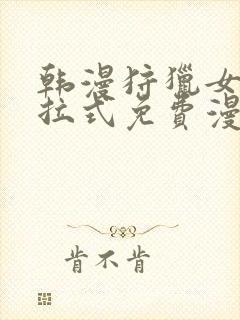 韩漫狩獵女
拉式免費漫
肯不肯